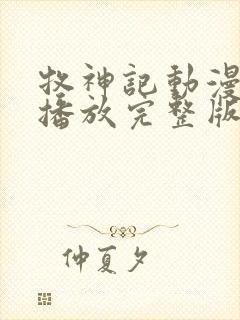 牧神記動漫
播放完整版
仲夏夕